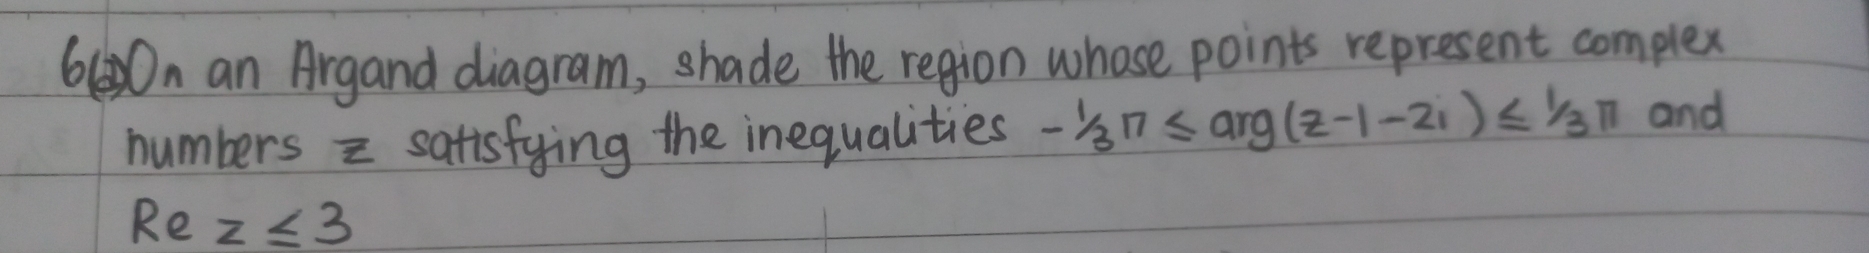 6(a) On an Argand diagram, shade the region whose points represent complex
numbers z satisfying the inequalities -⅓π ≤ arg(z-1-2i) ≤ ⅓π and
Re z ≤ 3